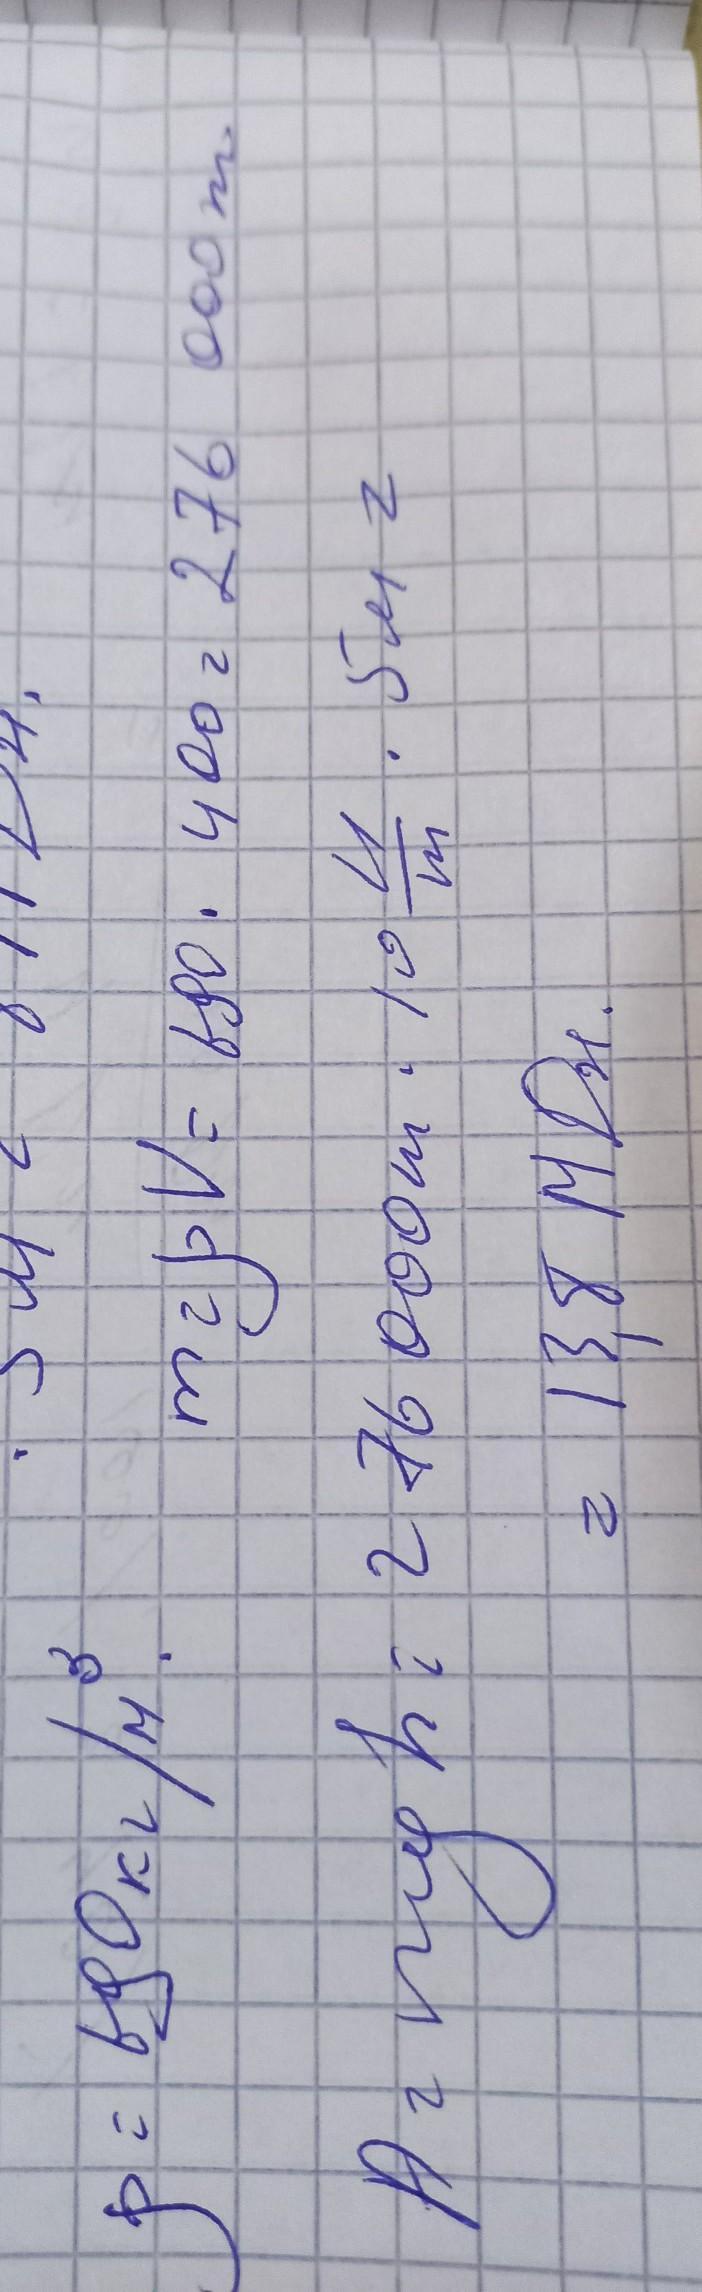 . 5м =
ρ = 690 кг/м³.
m = ρV = 690 · 400 = 276 000 т.
A = mgh = 276 000 т · 10 Н/т · 5м =
= 13,8 МДж.